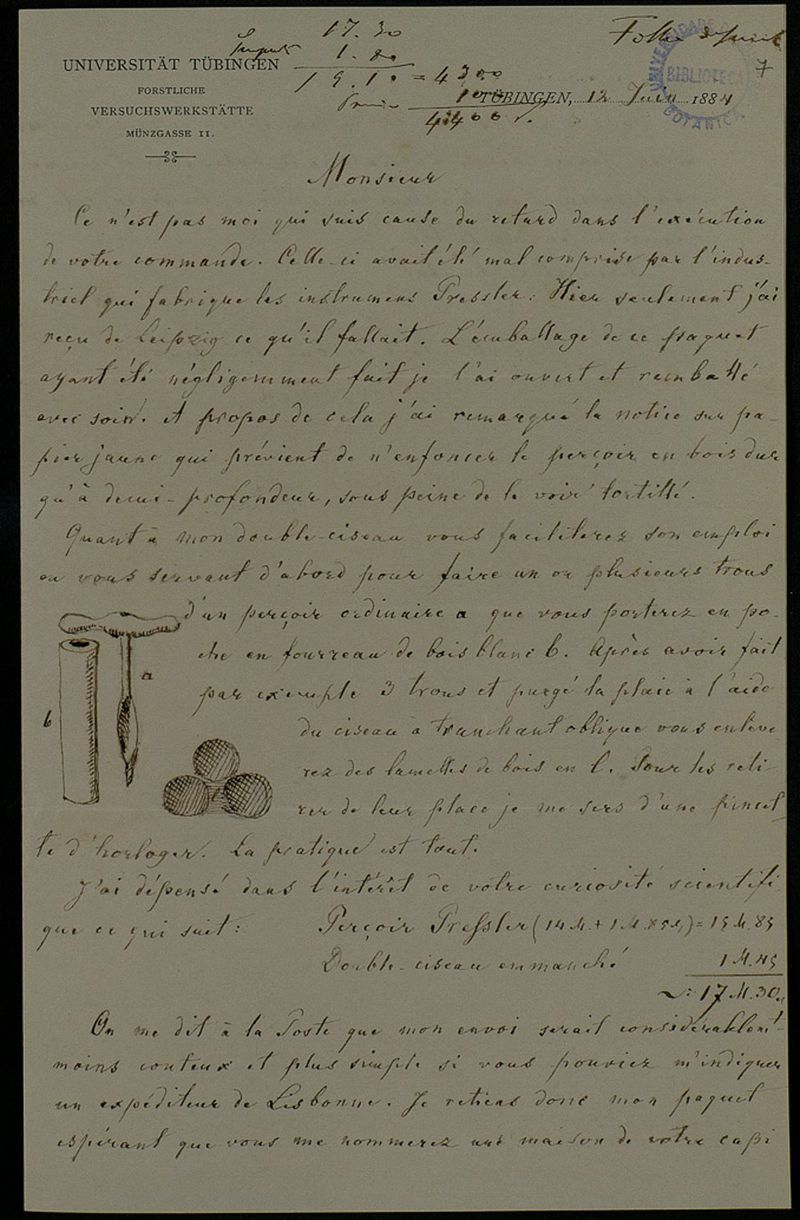 17.30
1.80
19.10 = 4300
100
4400
UNIVERSITÄT TÜBINGEN
FORSTLICHE
VERSUCHSWERKSTÄTTE
MÜNZGASSE 11.
7
BIBLIOTECA
BOTANICA
TÜBINGEN, 12 Juin 1884
Monsieur
Ce n'est pas moi qui suis cause du retard dans l'exécution
de votre commande. Celle-ci avait été mal comprise par l'indus-
triel qui fabrique les instrumens Pressler: Hier seulement j'ai
reçu de Leipzig ce qu'il fallait. L'emballage de ce paquet
ayant été négligemment fait je l'ai ouvert et remballé
avec soin. A propos de cela j'ai remarqué la notice sur pa-
pier jaune qui prévient de n'enfoncer le perçoir en bois dur
qu'à demi-profondeur, sous peine de le voir tortillé.
Quant à mon double-ciseau vous faciliterez son emploi
en vous servant d'abord pour faire un or plusieurs trous
d'un perçoir ordinaire a que vous porterez en po-
che en fourreau de bois blanc b. Après avoir fait
a
par exemple 3 trous et purgé la plaie à l'aide
b
du ciseau à tranchant oblique vous enlève-
rez des lamelles de bois en l. Pour les reti-
rer de leur place je me sers d'une pincet-
te d'horloger. La pratique est tout.
J'ai dépensé dans l'intérêt de votre curiosité scientifi-
que ce qui suit: Perçoir Pressler (14 M. + 1 M. 85 ) = 15 M. 85
Double-ciseau emmanché 1 M. 45
17 M. 30
On me dit à la Poste que mon envoi serait considérablemt
moins couteux et plus simple si vous pouviez m'indiquer
un expéditeur de Lisbonne. Je retiens donc mon paquet
espérant que vous me nommerez une maison de votre capi